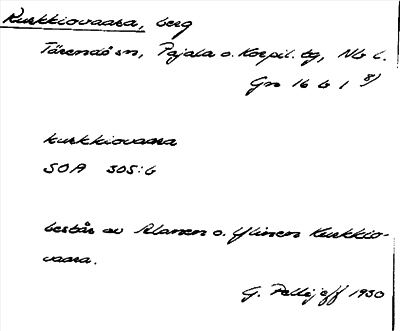 Kurkkiovaara, berg
Tärendö sn, Pajala o. Korpil. tg, Nb l.
Gn 16 b 1 8)
kurkkiovaara
SOA 305:6
består av Alanen o. Ylinen Kurkkio-
vaara.
G. Pellijeff 1930